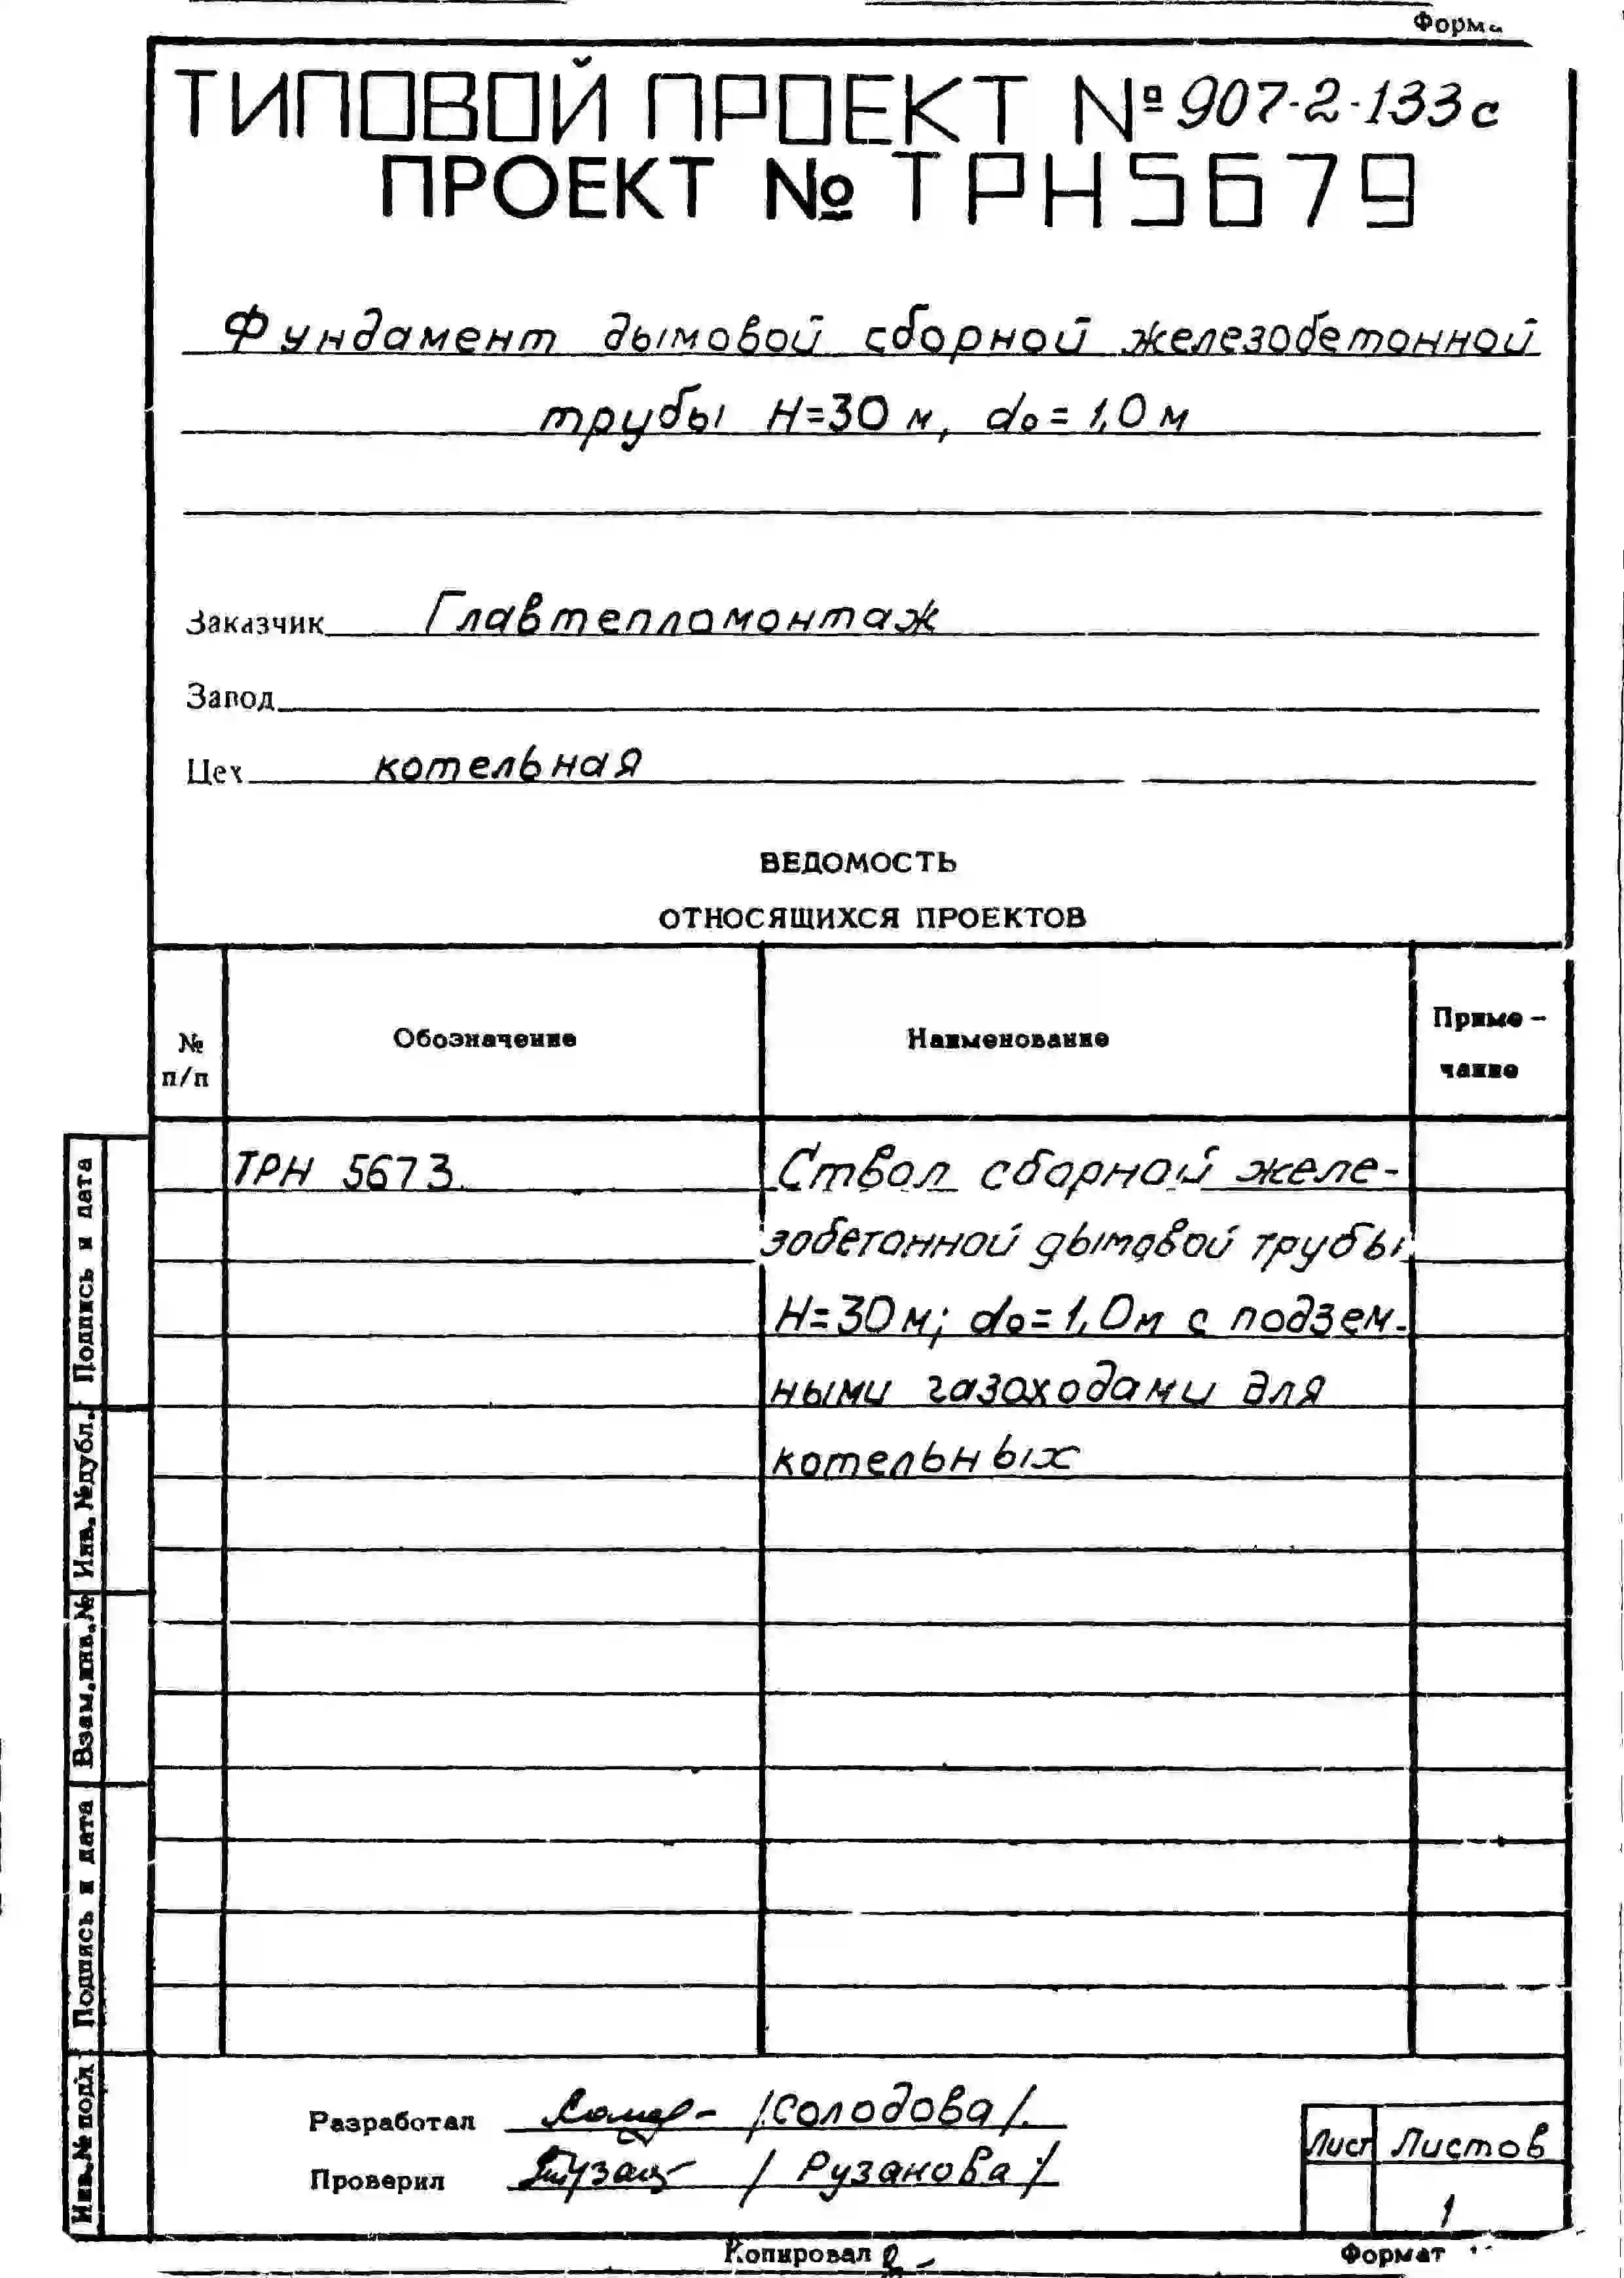 Форма
ТИПОВОЙ ПРОЕКТ № 907-2-133с
ПРОЕКТ № ТРН5679
Фундамент дымовой сборной железобетонной
трубы H=30 м, do = 1,0 м
Заказчик Главтепломонтаж
Завод
Цех котельная
ВЕДОМОСТЬ
ОТНОСЯЩИХСЯ ПРОЕКТОВ
№ п/п
Обозначение
Наименование
Приме-
чание
ТРН 5673
Ствол сборной желе-
зобетонной дымовой трубы
H=30м; do=1,0м с подзем-
ными газоходами для
котельных
Подпись и дата
Инв. № дубл.
Взам.инв.№
Подпись и дата
Инв.№ подл
Разработал /Солодова/
Проверил /Рузанова/
Лист Листов
1
Копировал
Формат